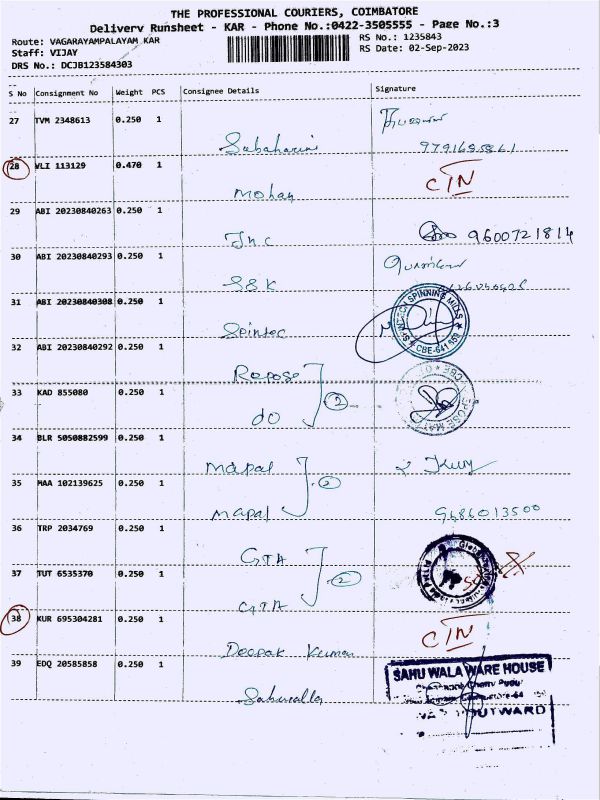 THE PROFESSIONAL COURIERS, COIMBATORE
Delivery Runsheet - KAR - Phone No.:0422-3505555 - Page No.:3
Route: VAGARAYAMPALAYAM KAR
RS No.: 1235843
Staff: VIJAY
RS Date: 02-Sep-2023
DRS No.: DCJB123584303
S No Consignment No Weight PCS Consignee Details Signature
27 TVM 2348613 0.250 1
Sabaharini
28 VLI 113129 0.470 1
Mohan CTN
29 ABI 20230840263 0.250 1
Inc 9600721814
30 ABI 20230840293 0.250 1
SSK
31 ABI 20230840308 0.250 1
SPINTEC SPINNING MILLS
CBE-641
Spintec
32 ABI 20230840292 0.250 1
Repose
2
33 KAD 855080 0.250 1
do
34 BLR 5050882599 0.250 1
Mapal
2
35 MAA 102139625 0.250 1
Mapal 9486013500
36 TRP 2034769 0.250 1
GTA
2
37 TUT 6535370 0.250 1
GTA
38 KUR 695304281 0.250 1
CTN
Deepak Kumar
39 EDQ 20585858 0.250 1
SAHU WALA WARE HOUSE
Sahuwalla
OUTWARD